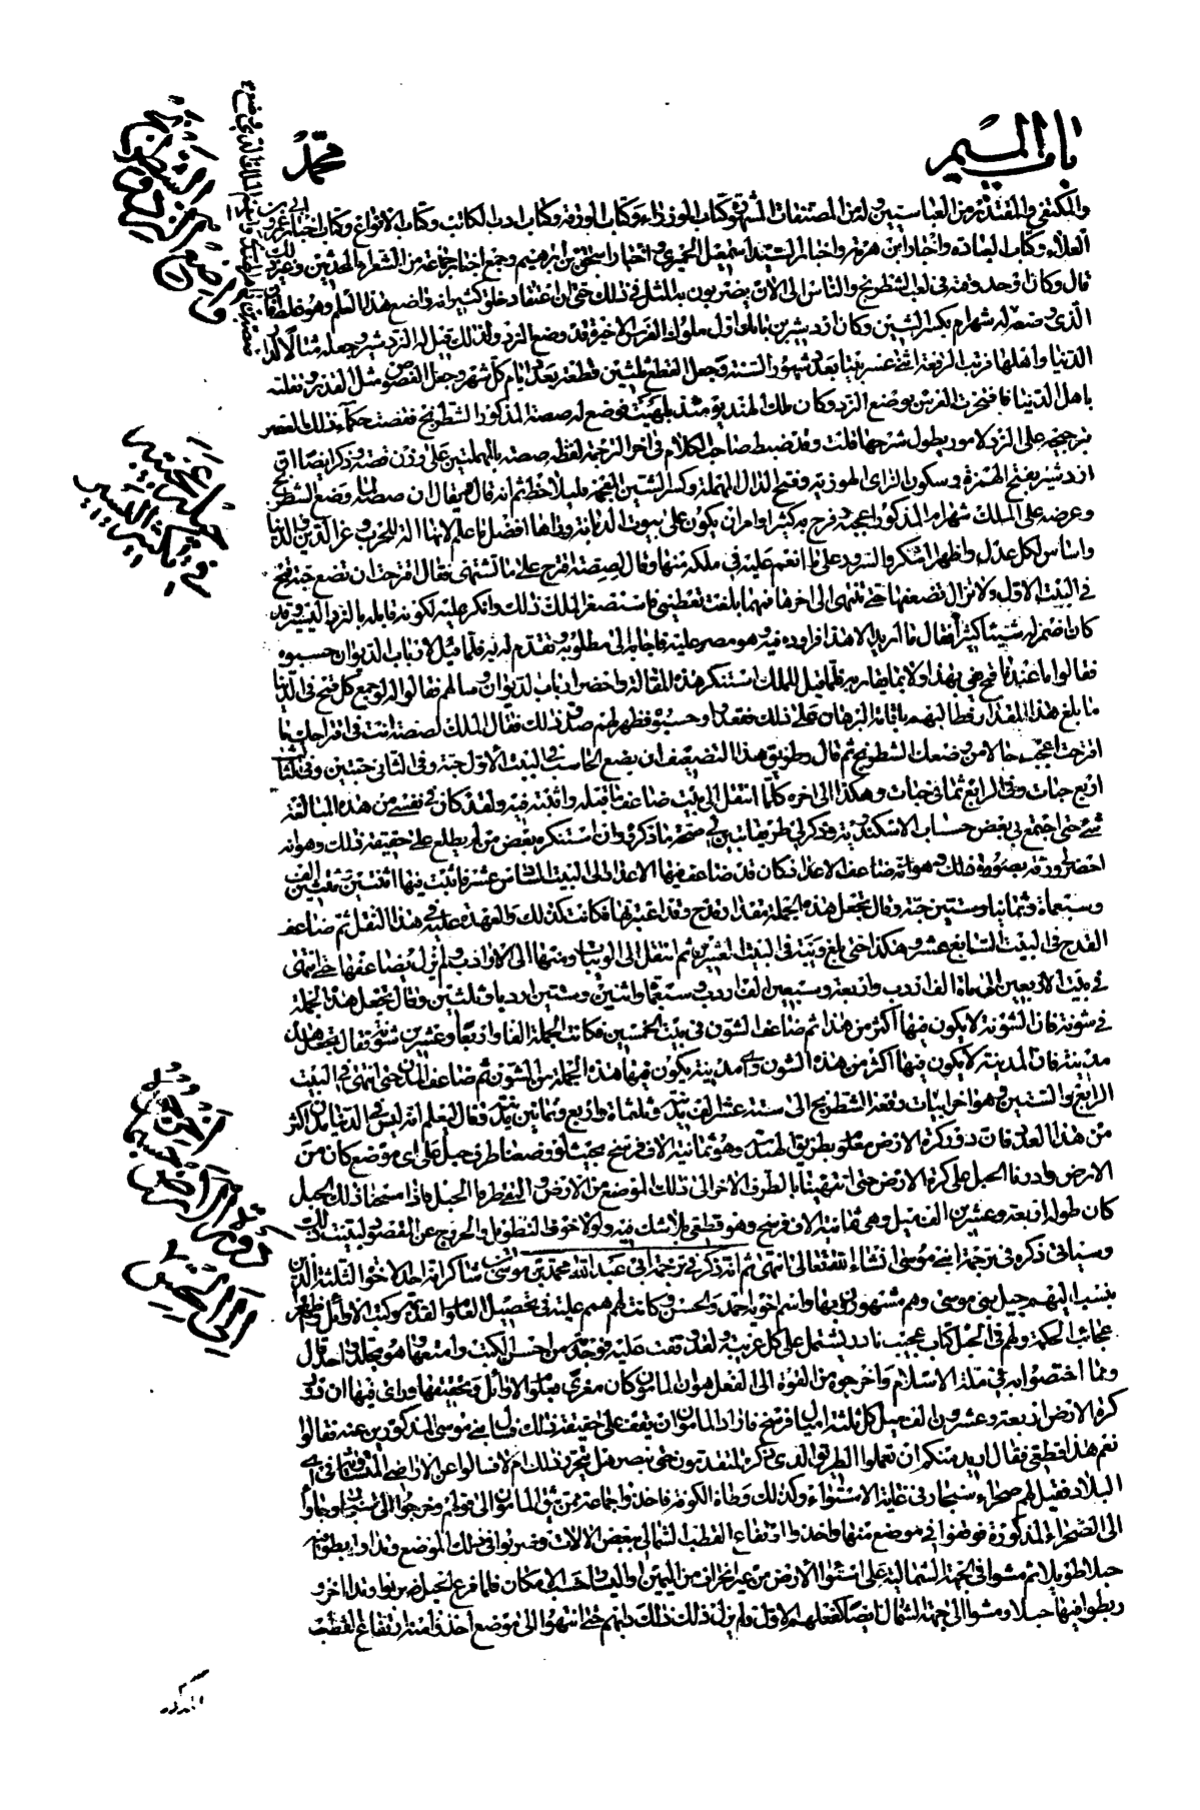 باب الميم
محمد
والمكتفي والمقتدر من الغباسيين وله من المصنفات المشهورة كتاب الوزراء وكتاب الورقة وكتاب ادب الكاتب وكتاب الانواع وكتاب اخبار ابي عمرو بن
العلاء وكتاب العباده واخبار ابن هرمه واخبار السيد اسمعيل الحميري واخبار اسحق بن ابرهيم وجمع اخبار جماعة من الشعراء والمحدثين وغير ذلك
قال وكان اوحد وقته في لعب الشطرنج والناس الى الان يضربون به المثل في ذلك حتى ان اعتقاد خلق كثير انه واضع هذا العلم وهو غلط فان
الذي وضعه له شهرام بكسر الشين وكان ازدشير بن بابك اول ملوك الفرس الاخيرة قد وضع النرد ولذلك قيل له النردشير وجعله مثالا لدار
الدنيا واهلها فرتب الرقعة اثني عشر بيتا بعدد شهور السنة وجعل القطع ثلثين قطعة بعدد ايام كل شهر وجعل الفصوص مثل القدر وتقلبه
باهل الدنيا فافتخرت الفرس بوضع النرد وكان ملك الهند يومئذ بلهيت فوضع له صصه المذكور الشطرنج فقضت حكماء ذلك العصر
بترجيحه على النرد لامور يطول شرحها قلت وقد ضبط صاحب الكلام في اخر الترجمة لفظه صصه بالمهملتين على وزن قصة وذكر ايضا ان
ازدشير بفتح الهمزة وسكون الزاى الهوزيه وفتح الدال المهملة وكسر الشين المعجمه ثم انه قال فيقال ان صصه لما وضع الشطرنج
وعرضه على الملك شهرام المذكور اعجبه وفرح به كثيرا وامر ان يكون على بيوت الديانة وراها افضل ما علم لانها اله للحرب وعز الدين والدنيا
واساس لكل عدل واظهر الشكر والسرور على ما انعم عليه في ملكه منها وقال لصصة اقترح علي ما تشتهى فقال اقترحت ان تضع حبة قمح
في البيت الاول ولا تزال تضعفها حتى تنتهى الى اخرها فمهما بلغت تعطيني فاستصغر الملك ذلك وانكر عليه لكونه قابله بالنزر اليسير وقد
كان اضمر له شيئا كثيرا فقال ما اريد الا هذا فراوده فيه وهو مصر عليه فاجابه الى مطلوبه وتقدم له به فلما قيل لارباب الديوان حسبوه
فقالوا ما عندنا قمح يفي بهذا ولا بما يقاربه فلما قيل للملك استنكر هذه المقالة واحضر ارباب الديوان وسالهم فقالوا له لو جمع كل قمح في الدنيا
ما بلغ هذا المقدار فطالبهم باقامة البرهان على ذلك فقعدوا وحسبوه فظهر لهم صدق ذلك فقال الملك لصصه انت في اقتراحك ما
اقترحت اعجب حالا من وضعك الشطرنج ثم قال وطريق هذا التضعيف ان يضع الحاسب في البيت الاول حبة وفي الثاني حبتين وفي الثالث
اربع حبات وفي الرابع ثماني حبات وهكذا الى اخره كلما انتقل الى بيت ضاعف ما قبله واثبته فيه ولقد كان في نفسي من هذه المبالغة
شيء حتى اجتمع بي بعض حساب الاسكندريه وذكر لي طريقا تبين لي صحة ما ذكروه وان استنكره بعض من لم يطلع على حقيقة ذلك وهو انه
احضر لي ورقة بصورة ذلك وهو انه ضاعف الاعداد فكان قد ضاعف فيها الاعداد الى البيت السادس عشر فاثبت فيها اثنتين وثلثين الف
وسبعماة وثمانيا وستين حبة وقال نجعل هذه الجملة مقدار قدح وقد اعتبرتها فكانت كذلك والعهدة عليه في هذا النقل ثم ضاعف
القدح في البيت السابع عشر وهكذا حتى بلغ ويبة في البيت العشرين ثم انتقل الى الويبات ومنها الى الارادب ولم يزل يضاعفها حتى انتهى
في بيت الاربعين الى ماة الف اردب واربعة وسبعين الف اردب وسبعماة واثنين وستين اردبا وثلثين وقال نجعل هذه الجملة
في شونة فان الشونة لا يكون فيها اكثر من هذا ثم ضاعف الشون في بيت الخمسين فكانت الجملة الفا واربعا وعشرين شونة فقال نجعل هذه
مدينة فان المدينة لا يكون فيها اكثر من هذه الشون واي مدينة يكون فيها هذه الجملة من الشون ثم ضاعف المدن حتى انتهى في البيت
الرابع والستين وهو اخر ابيات رقعة الشطرنج الى ستة عشر الف مدينة وثلثماة واربع وثمانين مدينة وقال ليعلم انه ليس في الدنيا مدن اكثر
من هذا العدد فان دور كرة الارض معلوم بطريق الهندسة وهو ثمانية الاف فرسخ بحيث لو وضعنا طرف حبل على اى موضع كان من
الارض وادرنا الحبل على كرة الارض حتى انتهينا بالطرف الاخر الى ذلك الموضع من الارض والتقى طرفا الحبل فاذا مسحنا ذلك الحبل
كان طوله اربعة وعشرين الف ميل وهى ثمانية الاف فرسخ وهو قطعي لا شك فيه ولولا خوف التطويل والخروج عن المقصود لبينت ذلك
وسياتى ذكره في ترجمة بني موسى ان شاء الله تعالى انتهى ثم انه ذكر في ترجمة ابى عبد الله محمد بن موسى بن شاكر انه احد الاخوة الثلثة الذين
ينسب اليهم حيل بنى موسى وهم مشهورون بها واسم اخويه احمد والحسن وكانت لهم همم عليه في تحصيل العلوم القديمة وكتب الاوائل
عجائب الحكمة ولهم في الحيل كتاب عجيب نادر يشتمل على كل غريبة ولقد وقفت عليه فوجدته من احسن الكتب وامتعها وهو مجلد واحد قال
ومما اختصوا به في ملة الاسلام واخرجوه من القوة الى الفعل هو ان المامون كان مغرى بعلوم الاوائل وتحقيقها وراى فيها ان دور
كرة الارض اربعة وعشرون الف ميل كل ثلثة اميال فرسخ فاراد المامون ان يقف على حقيقة ذلك فسال بني موسى المذكورين عنه فقالوا
نعم هذا قطعي فقال اريد منكم ان تعملوا الطريق الذى ذكره المتقدمون حتى نبصر هل يتحرر ذلك ام لا فسالوا عن الاراضى المتساوية في اي
البلاد فقيل لهم صحراء سنجار في غاية الاستواء وكذلك وطاة الكوفة فاخذوا جماعة ممن يثق المامون الى قولهم وخرجوا الى سنجار وجاوا
الى الصحراء المذكورة فوقفوا في موضع منها واخذوا ارتفاع القطب الشمالي ببعض الالات وضربوا في ذلك الموضع وتدا وربطوا فيه
حبلا طويلا ثم مشوا في الجهة الشمالية على استواء الارض من غير انحراف من اليمين او اليسار حسب الامكان فلما فرغ الحبل ضربوا وتدا اخر و
ربطوا فيها حبلا ومشوا الى جهة الشمال ايضا كفعلهم الاول ولم يزل ذلك دابهم حتى انتهوا الى موضع اخذوا منه ارتفاع القطب
المذكور